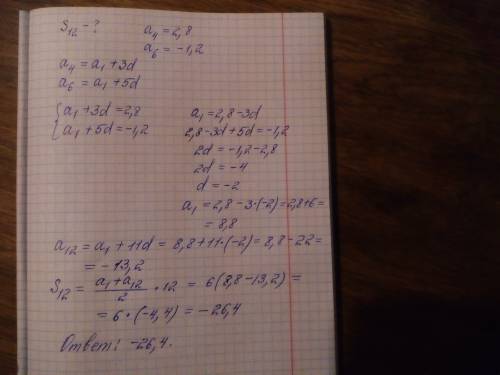 S₁₂ - ?
a₄ = 2,8
a₆ = -1,2
a₄ = a₁ + 3d
a₆ = a₁ + 5d
{ a₁ + 3d = 2,8
a₁ + 5d = -1,2
a₁ = 2,8 - 3d
2,8 - 3d + 5d = -1,2
2d = -1,2 - 2,8
2d = -4
d = -2
a₁ = 2,8 - 3·(-2) = 2,8 + 6 =
= 8,8
a₁₂ = a₁ + 11d = 8,8 + 11·(-2) = 8,8 - 22 =
= -13,2
S₁₂ = (a₁ + a₁₂)/2 · 12 = 6(8,8 - 13,2) =
= 6 · (-4,4) = -26,4
Ответ: -26,4.